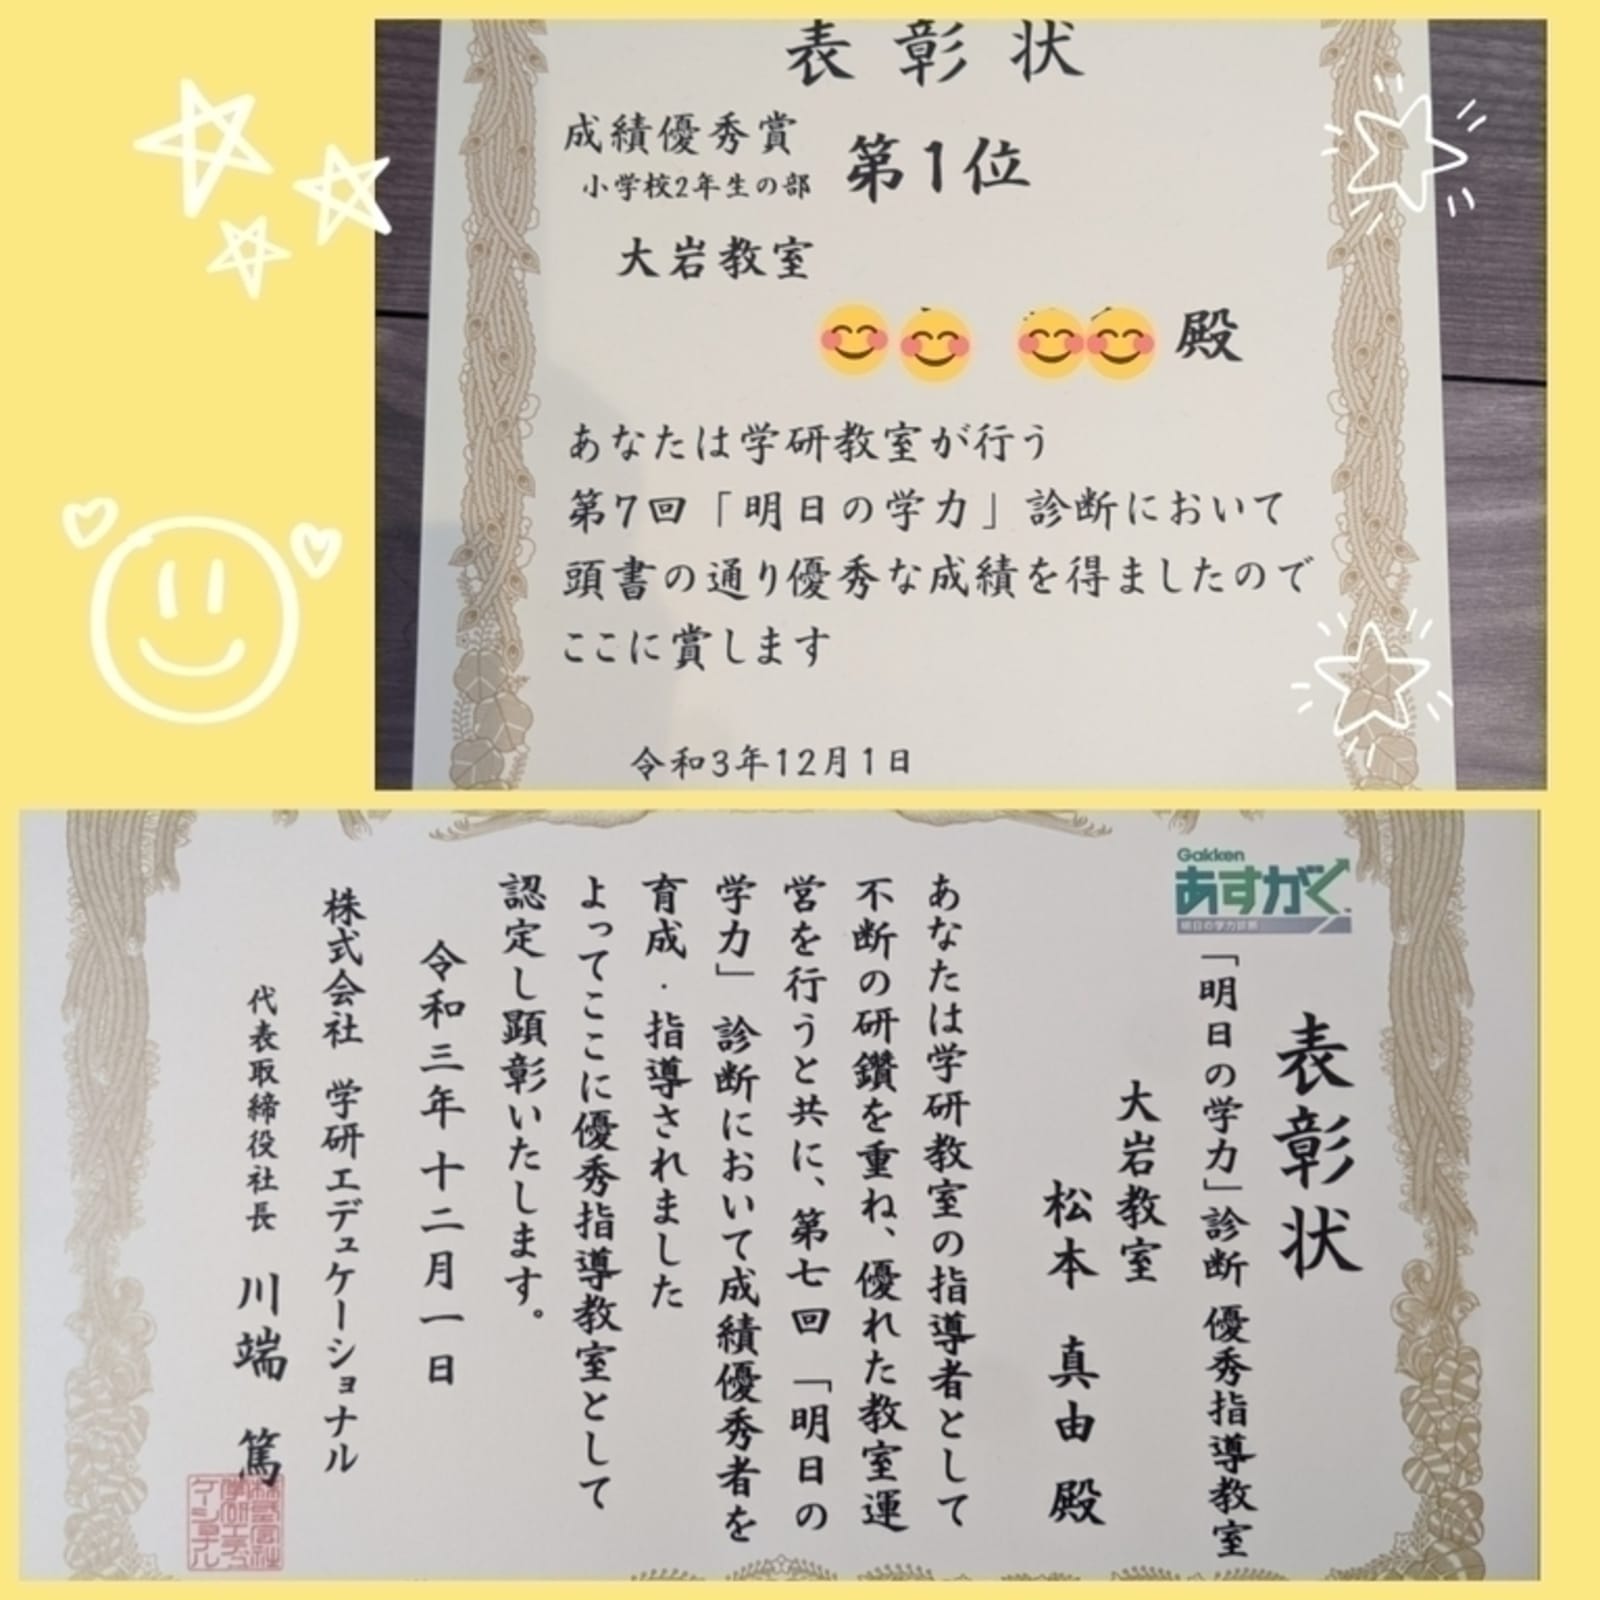 表彰状
成績優秀賞
小学校2年生の部
第1位
大岩教室
殿
あなたは学研教室が行う
第7回「明日の学力」診断において
頭書の通り優秀な成績を得ましたので
ここに賞します
令和3年12月1日
Gakken
あすがく
明日の学力診断
表彰状
「明日の学力」診断 優秀指導教室
大岩教室
松本 真由 殿
あなたは学研教室の指導者として
不断の研鑽を重ね、優れた教室運
営を行うと共に、第七回「明日の
学力」診断において成績優秀者を
育成・指導されました
よってここに優秀指導教室として
認定し顕彰いたします。
令和三年十二月一日
株式会社 学研エデュケーショナル
代表取締役社長 川端 篤
株式会社
学研エデュ
ケーショナル